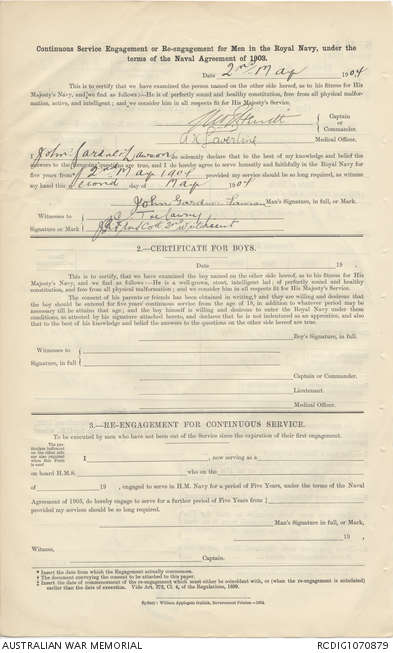 Continuous Service Engagement or Re-engagement for Men in the Royal Navy, under the
terms of the Naval Agreement of 1903.
Date 2nd May 1904
This is to certify that we have examined the person named on the other side hereof, as to his fitness for His
Majesty's Navy, and we find as follows:—He is of perfectly sound and healthy constitution, free from all physical malfor-
mation, active, and intelligent; and we consider him in all respects fit for His Majesty's Service.
Captain
or
Commander.
Medical Officer.
I John Gardner Lawson do solemnly declare that to the best of my knowledge and belief the
answers to the foregoing questions are true, and I do hereby agree to serve honestly and faithfully in the Royal Navy for
five years from* 2nd May 1904 provided my service should be so long required, as witness
my hand this Second day of May 1904
John Gardner Lawson Man's Signature, in full, or Mark.
Witnesses to
Signature or Mark
2.—CERTIFICATE FOR BOYS.
Date 19 .
This is to certify, that we have examined the boy named on the other side hereof, as to his fitness for His Majesty's
Navy, and we find as follows:—He is a well-grown, stout, intelligent lad; of perfectly sound and healthy
constitution, and free from all physical malformation; and we consider him in all respects fit for His Majesty's Service.
The consent of his parents or friends has been obtained in writing,† and they are willing and desirous that
the boy should be entered for five years' continuous service from the age of 18, in addition to whatever period may be
necessary till he attains that age; and the boy himself is willing and desirous to enter the Royal Navy under these
conditions, as attested by his signature attached hereto, and declares that he is not indentured as an apprentice, and also
that to the best of his knowledge and belief the answers to the questions on the other side hereof are true.
Boy's Signature, in full.
Witnesses to
Signature, in full
Captain or Commander.
Lieutenant.
Medical Officer.
3.—RE-ENGAGEMENT FOR CONTINUOUS SERVICE.
To be executed by men who have not been out of the Service since the expiration of their first engagement.
The par-
ticulars indicated
on the other side
are also required
when this Form
is used
I , now serving as a
on board H.M.S. who on the
of 19 , engaged to serve in H.M. Navy for a period of Five Years, under the terms of the Naval
Agreement of 1903, do hereby engage to serve for a further period of Five Years from‡
provided my services should be so long required.
Man's Signature in full, or Mark,
19 .
Witness,
Captain.
* Insert the date from which the Engagement actually commences.
† The document conveying the consent to be attached to this paper.
‡ Insert the date of commencement of the re-engagement which must either be coincident with, or (when the re-engagement is antedated)
earlier than the date of execution. Vide Art. 372, Cl. 4, of the Regulations, 1899.
Sydney: William Applegate Gullick, Government Printer.—1904.
AUSTRALIAN WAR MEMORIAL
RCDIG1070879